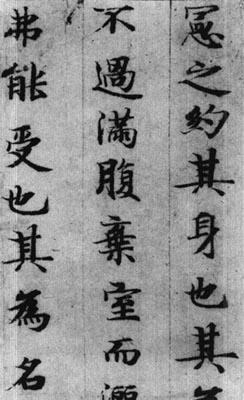 憲之約其身也其
不過滿腹棄室而
弗能受也其為名